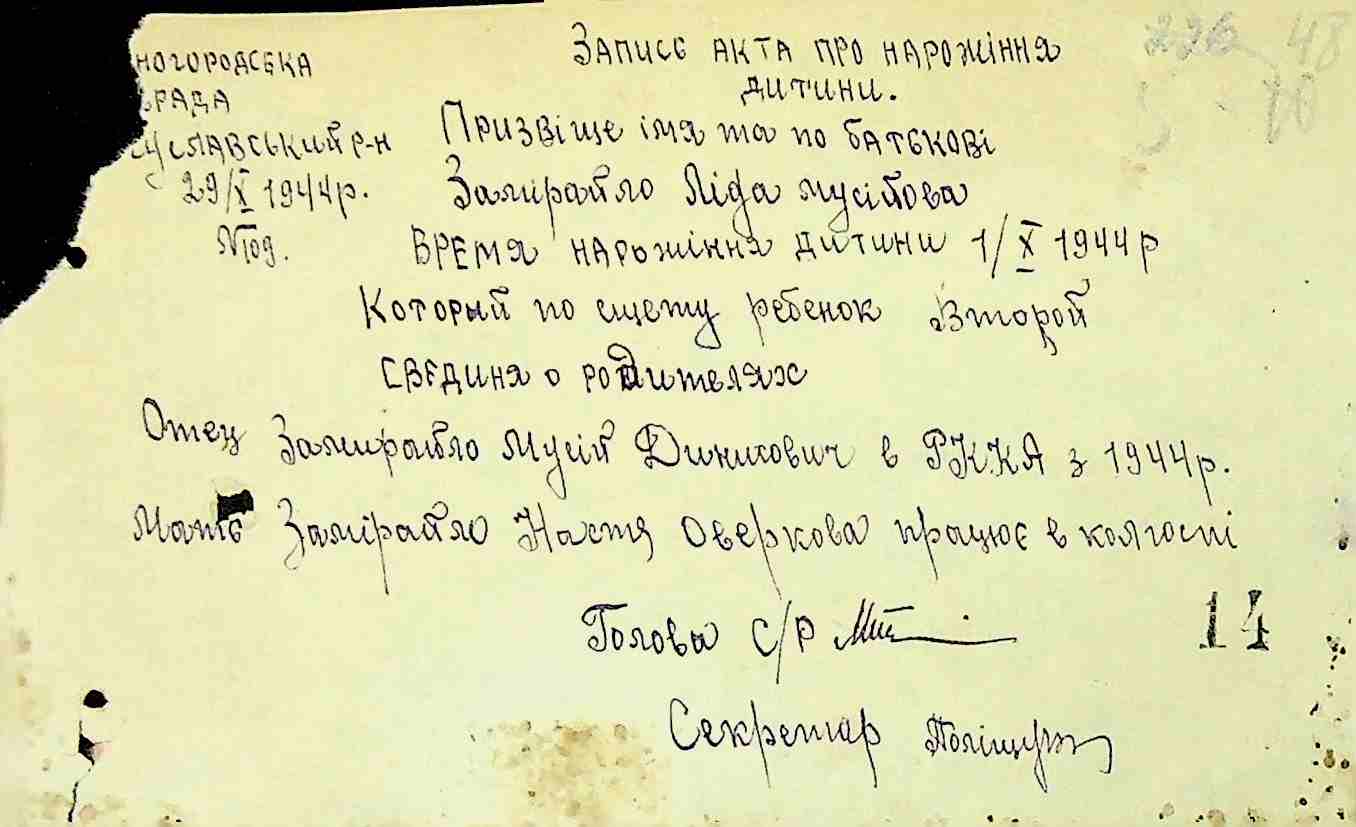 НОГОРОДСЬКА
РАДА
УСЛАВСЬКИЙ Р-Н
29/X 1944р.
ЗАПИСЬ АКТА ПРО НАРОЖІННЯ
ДИТИНИ.
Призвіще імя та по батькові
Замірайло Ліда Мусійова
ВРЕМЯ НАРОЖІННЯ ДИТИНИ 1/X 1944р
Который по сщету ребенок Второй
СВЕДИНЯ о родителях
Отец Замирайло Мусій Динисович в РККА з 1944р.
Мать Замірайло Настя Оверкова працює в колгоспі
Голова С/Р
Секретар Поліщук
14
48